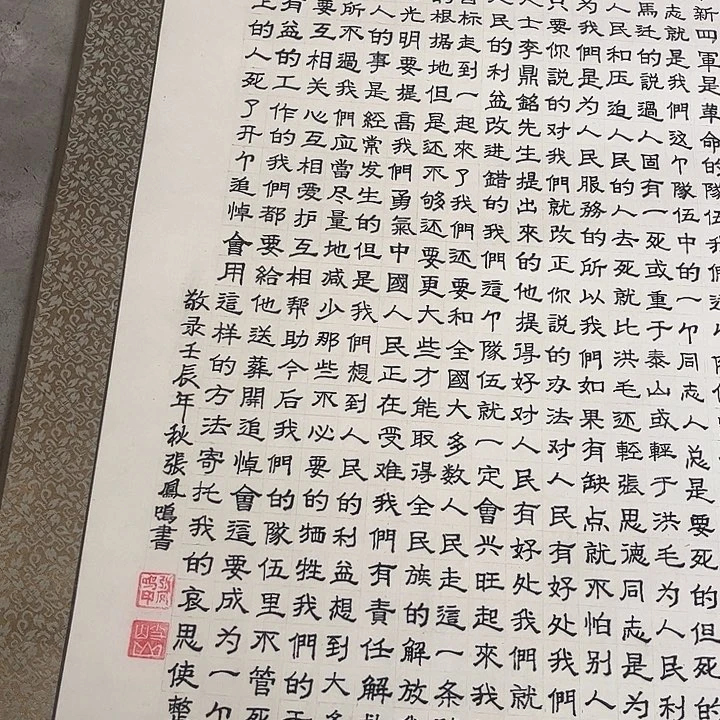 新四軍是革命的隊伍我們這
志就是我們这个隊伍中的一个同志人总是要死的但
馬迁的說過人固有一死或重于泰山或輕于洪毛为人民利
人民和压迫人民的人去死就比洪毛还輕張思德同志是为
为我們是为人民服務的所以我們如果有缺点就不怕別人
只要你說的对我們就改正你說的办法对人民有好处我們
人士李鼎銘先生提出來的他提得好对人民有好处我們就
民的利益改进錯的我們這个隊伍就一定會兴旺起來我
目标走到一起來了我們还要和全國大多数人民走這一条
的根据地但是还不够还要更大些才能取得全民族的解放
光明要提高我們勇氣中國人民正在受难我們有責任解
人的事是經常发生的但是我們想到人民的利益想到大多
所不過我們应當尽量地減少那些不必要的牺牲我們的
要互相关心互相爱护互相帮助今后我們的隊伍里不管死
有益的工作的我們都要給他送葬開追悼會這要成为一个
上的人死了开个追悼會用這样的方法寄托我的哀思使整
敬录壬辰年秋張鳳鳴書